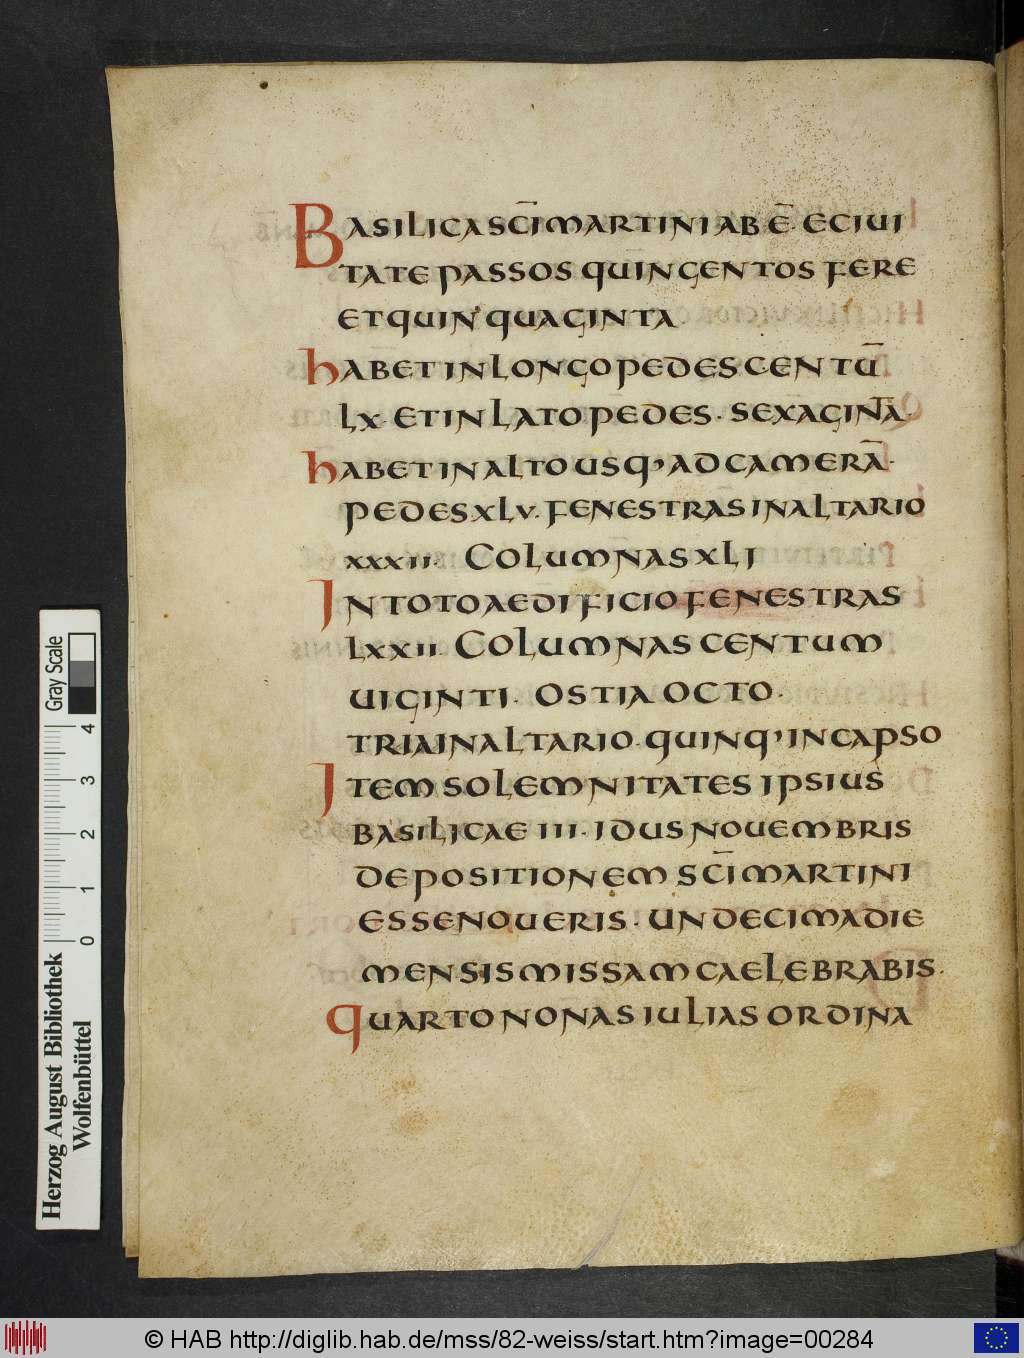 BASILICA SC̅I MARTINI ABE̅· E CIUI
TATE PASSOS QUINGENTOS FERE
ET QUINQUAGINTA·
HABET IN LONGO PEDES CENTU̅
LX· ET IN LATO PEDES· SEXAGINT̅A·
HABET IN ALTO USQ’ AD CAMERA̅·
PEDES XLV· FENESTRAS IN ALTARIO
XXXII· COLUMNAS XLI
IN TOTO AEDIFICIO FENESTRAS
LXXII· COLUMNAS CENTUM
UIGINTI· OSTIA OCTO·
TRIA IN ALTARIO· QUINQ’ IN CAPSO
ITEM SOLEMNITATES IPSIUS
BASILICAE III· IDUS NOUEMBRIS
DEPOSITIONEM SC̅I MARTINI
ESSE NOUERIS· UNDECIMA DIE
MENSIS MISSAM CAELEBRABIS·
QUARTO NONAS IULIAS ORDINA
Herzog August Bibliothek
Wolfenbüttel
0 1 2 3 4
Gray Scale
© HAB http://diglib.hab.de/mss/82-weiss/start.htm?image=00284